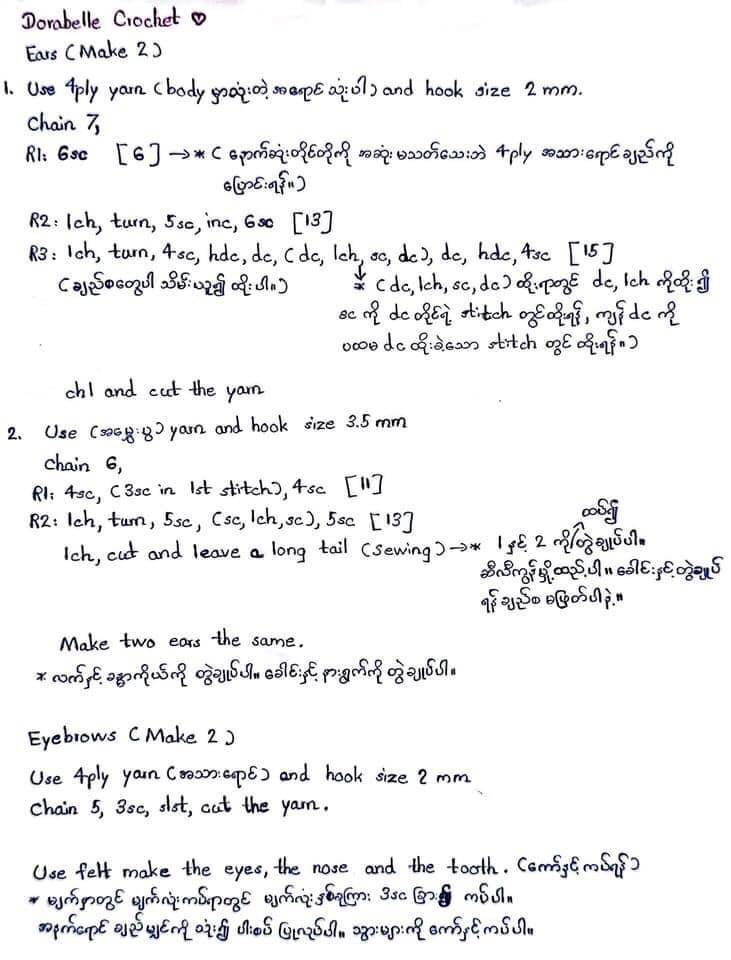 Dorabelle Crochet ♡
Ears (Make 2)
1. Use 4ply yarn (body မှာသုံးတဲ့ အရောင် သုံးပါ) and hook size 2 mm.
Chain 7,
R1: 6sc [6] → * ( နောက်ဆုံးတိုင်တိုကို အဆုံးမသတ်သေးဘဲ 4ply အသားရောင်ချည်ကို
ပြောင်းရန်။)
R2: 1ch, turn, 5sc, inc, 6sc [13]
R3: 1ch, turn, 4sc, hdc, dc, (dc, 1ch, sc, dc), dc, hdc, 4sc [15]
(ချည်စတွေပါ သိမ်းယူ၍ ထိုးပါ။) * (dc, 1ch, sc, dc) ထိုးရာတွင် dc, 1ch ကိုထိုး၍
sc ကို dc တိုင်ရဲ့ stitch တွင်ထိုးရန်, ကျန် dc ကို
ပထမ dc ထိုးခဲ့သော stitch တွင် ထိုးရန်။)
ch1 and cut the yarn
2. Use (အမွှေးပွ) yarn and hook size 3.5 mm
Chain 6,
R1: 4sc, (3sc in 1st stitch), 4sc [11]
R2: 1ch, turn, 5sc, (sc, 1ch, sc), 5sc [13]
1ch, cut and leave a long tail (sewing) → * 1 နှင့် 2 ကို ထပ်၍ တွဲချုပ်ပါ။
ဆီလီကွန်မို့ထည့်ပါ။ ခေါင်းနှင့် တွဲချုပ်
ရန် ချည်စ မဖြတ်ပါနဲ့။
Make two ears the same.
* လက်နှင့် ခန္ဓာကိုယ်ကို တွဲချုပ်ပါ။ ခေါင်းနှင့် နားရွက်ကို တွဲချုပ်ပါ။
Eyebrows (Make 2)
Use 4ply yarn (အသားရောင်) and hook size 2 mm
Chain 5, 3sc, slst, cut the yarn.
Use felt make the eyes, the nose and the tooth. (ကော်နှင့်ကပ်ရန်)
* မျက်နှာတွင် မျက်လုံးကပ်ရာတွင် မျက်လုံးနှစ်ခုကြား 3sc ခြား၍ ကပ်ပါ။
အနက်ရောင် ချည်မျှင်ကို သုံး၍ ပါးစပ် ပြုလုပ်ပါ။ သွားများကို ကော်နှင့်ကပ်ပါ။